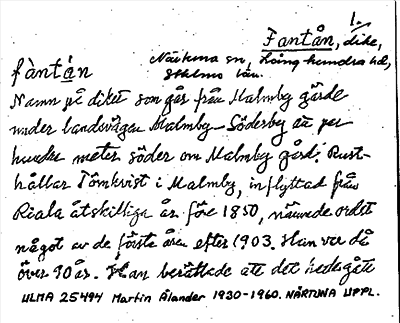 1.
Fantån, dike,
Närtuna sn, Långhundra hd,
fàntån Sthlms län.
Namn på diket som går från Malmby gärde
under landsvägen Malmby-Söderby ett par
hundra meter söder om Malmby gård. Rust-
hållar Törnkvist i Malmby, inflyttad från
Riala åtskilliga år före 1850, nämnde ordet
något av de första åren efter 1903. Han var då
över 90 år. Han berättade att det hade gått
ULMA 25494 Martin Ålander 1930-1960. NÄRTUNA UPPL.